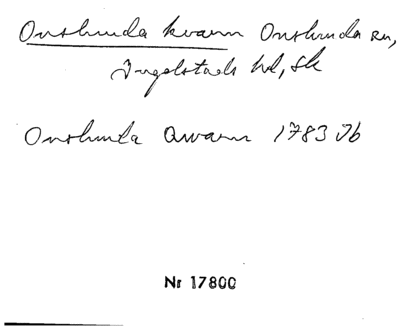 Onslunda kvarn Onslunda sn,
Ingelstads hd, Sk
Onslunda Qwarn 1783 Jb
Nr 17800